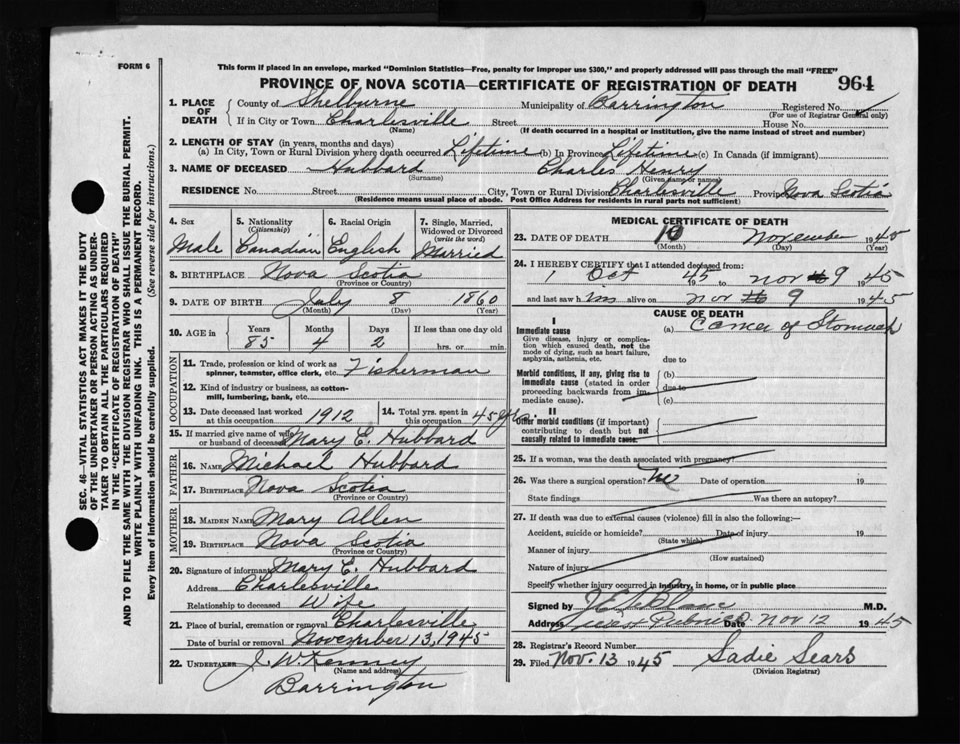 FORM 6
This form if placed in an envelope, marked "Dominion Statistics—Free, penalty for improper use $300," and properly addressed will pass through the mail "FREE"
PROVINCE OF NOVA SCOTIA—CERTIFICATE OF REGISTRATION OF DEATH 964
1. PLACE OF DEATH County of Shelburne Municipality of Barrington Registered No.
(For use of Registrar General only)
If in City or Town Charlesville Street House No.
(Name) (If death occurred in a hospital or institution, give the name instead of street and number)
2. LENGTH OF STAY (in years, months and days)
(a) In City, Town or Rural Division where death occurred Lifetime (b) In Province Lifetime (c) In Canada (if immigrant)
3. NAME OF DECEASED Hubbard Charles Henry
(Surname) (Given name or names)
RESIDENCE No. Street City, Town or Rural Division Charlesville Province Nova Scotia
(Residence means usual place of abode. Post Office Address for residents in rural parts not sufficient)
4. Sex Male
5. Nationality (Citizenship) Canadian
6. Racial Origin English
7. Single, Married, Widowed or Divorced (write the word) Married
8. BIRTHPLACE Nova Scotia
(Province or Country)
9. DATE OF BIRTH July 8 1860
(Month) (Day) (Year)
10. AGE in Years Months Days If less than one day old
85 4 2 hrs. or min.
OCCUPATION
11. Trade, profession or kind of work as spinner, teamster, office clerk, etc. Fisherman
12. Kind of industry or business, as cotton-mill, lumbering, bank, etc.
13. Date deceased last worked at this occupation 1912
14. Total yrs. spent in this occupation 45 yrs.
15. If married give name of wife or husband of deceased Mary E. Hubbard
FATHER
16. NAME Michael Hubbard
17. BIRTHPLACE Nova Scotia
(Province or Country)
MOTHER
18. MAIDEN NAME Mary Allen
19. BIRTHPLACE Nova Scotia
(Province or Country)
20. Signature of informant Mary E. Hubbard
Address Charlesville
Relationship to deceased Wife
21. Place of burial, cremation or removal Charlesville
Date of burial or removal November 13, 1945
22. UNDERTAKER J. W. Kenney
(Name and address)
Barrington
MEDICAL CERTIFICATE OF DEATH
23. DATE OF DEATH 10 November 1945
(Month) (Day) (Year)
24. I HEREBY CERTIFY that I attended deceased from:
1 Oct 1945 to nov 9 1945
and last saw him alive on nov 9 1945
CAUSE OF DEATH
I
Immediate cause (a) Cancer of Stomach
Give disease, injury or complication which caused death, not the mode of dying, such as heart failure, asphyxia, asthenia, etc.
due to
Morbid conditions, if any, giving rise to immediate cause (stated in order proceeding backwards from immediate cause).
(b)
due to
(c)
II
Other morbid conditions (if important) contributing to death but not causally related to immediate cause.
25. If a woman, was the death associated with pregnancy?
26. Was there a surgical operation? no Date of operation 19
State findings Was there an autopsy?
27. If death was due to external causes (violence) fill in also the following:—
Accident, suicide or homicide? Date of injury 19
(State which)
Manner of injury
(How sustained)
Nature of injury
Specify whether injury occurred in industry, in home, or in public place
Signed by M.D.
Address Date Nov 12 1945
28. Registrar's Record Number
29. Filed Nov. 13 1945 Sadie Sears
(Division Registrar)
SEC. 46—VITAL STATISTICS ACT MAKES IT THE DUTY
OF THE UNDERTAKER OR PERSON ACTING AS UNDER-
TAKER TO OBTAIN ALL THE PARTICULARS REQUIRED
IN THE "CERTIFICATE OF REGISTRATION OF DEATH"
AND TO FILE THE SAME WITH THE DIVISION REGISTRAR WHO SHALL ISSUE THE BURIAL PERMIT.
WRITE PLAINLY WITH UNFADING INK. THIS IS A PERMANENT RECORD.
Every item of information should be carefully supplied. (See reverse side for instructions.)